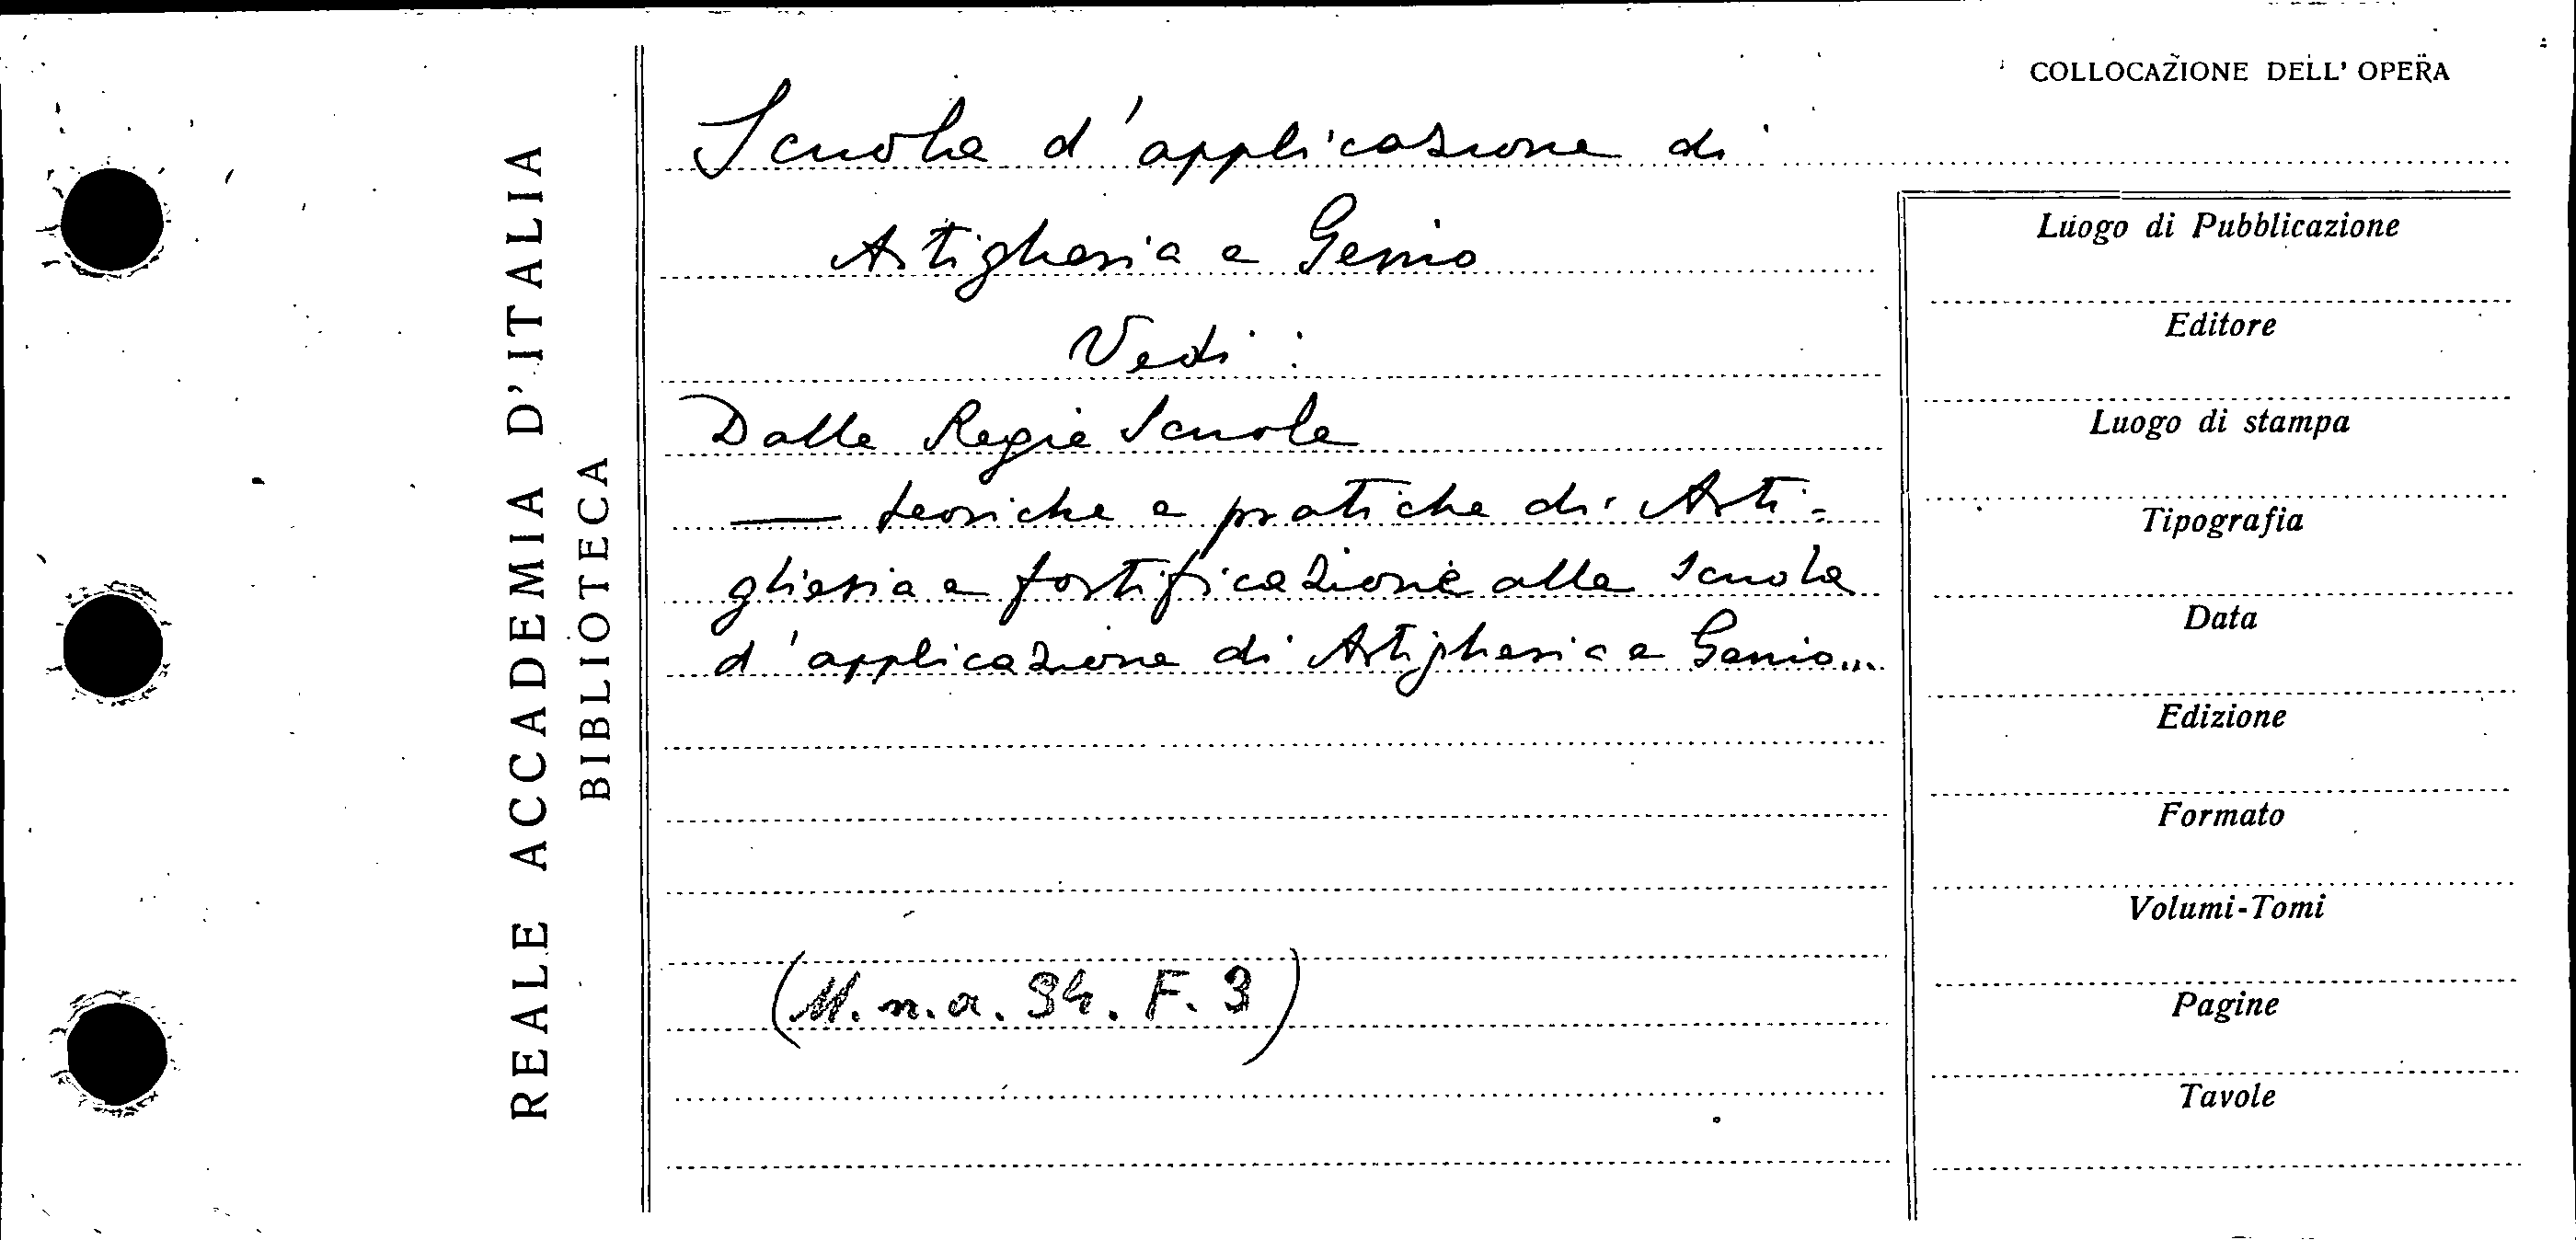 REALE ACCADEMIA D'ITALIA
BIBLIOTECA
COLLOCAZIONE DELL' OPERA
Scuola d'applicazione di
Artiglieria e Genio
Vedi:
Dalle Regie Scuole
— teoriche e pratiche di Arti-
glieria e fortificazione alla Scuola
d'applicazione di Artiglieria e Genio...
(M.n.a. 94. F. 3)
Luogo di Pubblicazione
Editore
Luogo di stampa
Tipografia
Data
Edizione
Formato
Volumi-Tomi
Pagine
Tavole